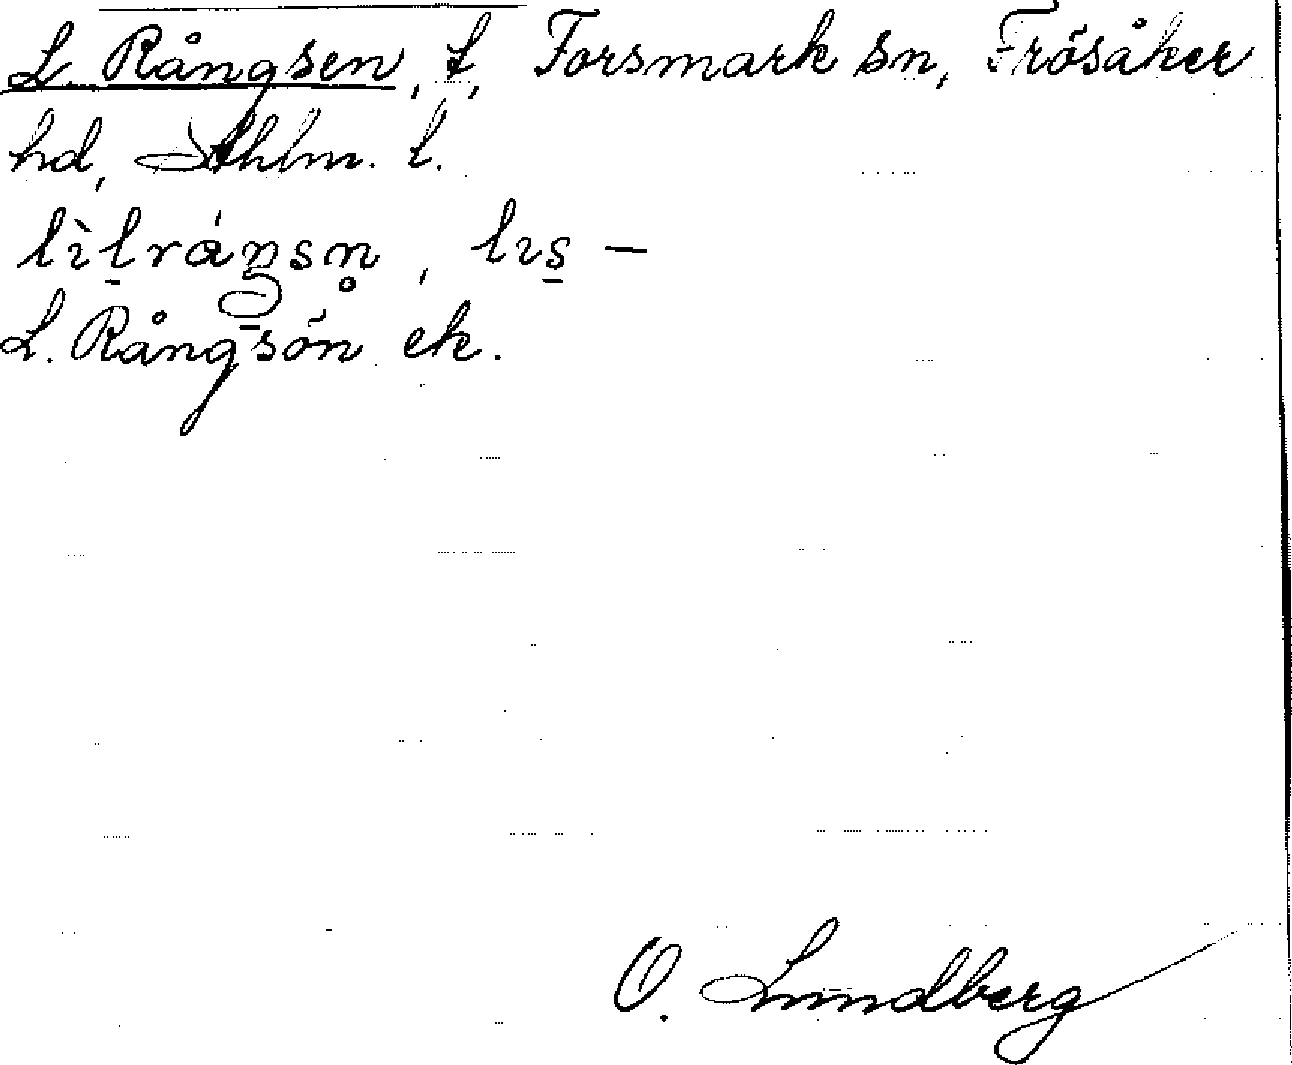 L. Rångsen, t, Forsmark sn, Frösåker
hd, Sthlm. l.
lìlráŋsn̥, lıs —
L. Rångsön ek.
O. Lundberg